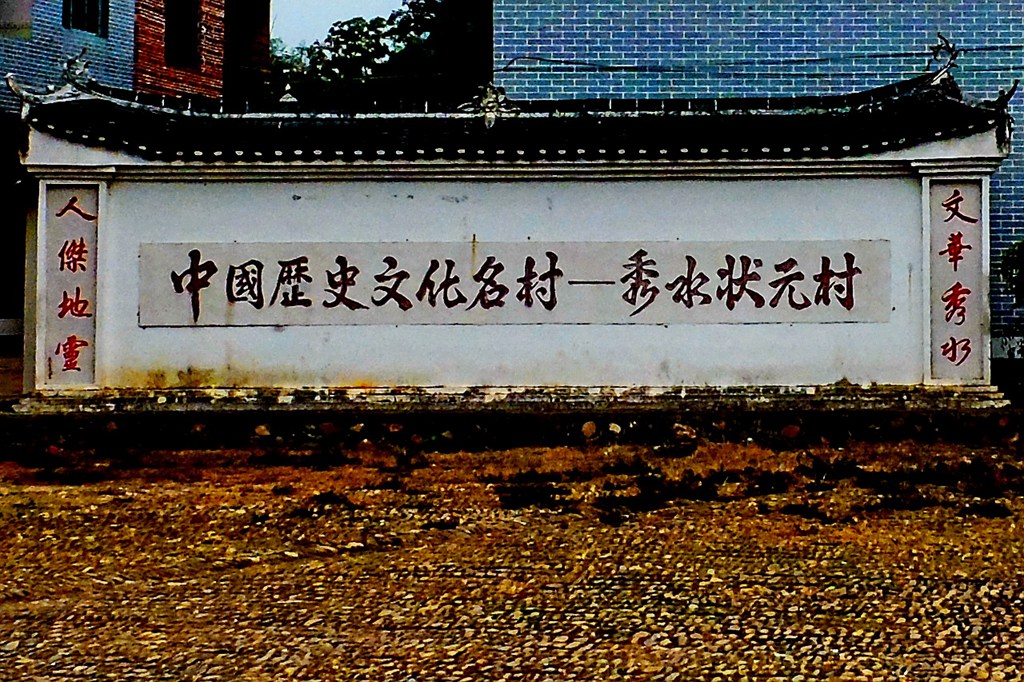 人傑地靈
中國歷史文化名村—秀水状元村
文華秀水